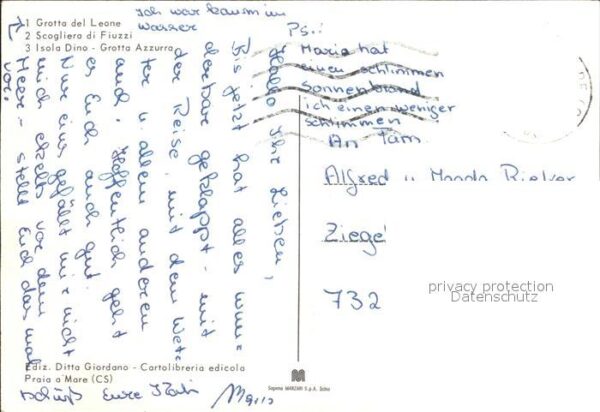 1 Grotta del Leone
2 Scogliera di Fiuzzi
3 Isola Dino - Grotta Azzurra
Ich war kaum im
Wasser
Hallo Ihr Lieben,
Bis jetzt hat alles wun-
derbar geklappt - mit
der Reise, mit dem Wet-
ter u. allem anderen
auch. Hoffentlich geht
es Euch auch gut.
Nur eins gefällt mir nicht
mich ekelts vor dem
Meer - stellt Euch das mal
vor.
Tschüß Eure
Mario
PS.:
Maria hat
einen schlimmen
Sonnenbrand
ich einen weniger
schlimmen
An Fam.
Alfred u
732
privacy protection
Datenschutz
Ediz. Ditta Giordano - Cartolibreria edicola
Praia a Mare (CS)